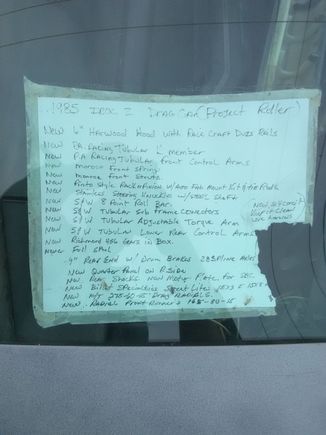 1985 IROC Z DRAG CAR (Project Roller)
New 6" Harwood Hood with Race Craft Dzus Rails
New PA Racing Tubular K member
New PA Racing Tubular front Control Arms
New moroso front Spring
New moroso front Struts
New Pinto Style Rack & Pinion w/ Kit
New Stainless Steering Knuckles w/ Steel Shaft
New S/W 8 Point Roll Bar
New S/W Tubular Sub frame Connectors
New S/W Tubular Adjustable Torque Arm
New S/W Tubular Lower Rear Control Arms
New Richmond 456 Gears in Box.
New Full Spool
9" Rear End w/ Drum Brakes 28 Spline Axles
New Quarter Panel on P. Side
New Rear Shocks New Motor Plate for SBC.
New Billet Specialties Street Lites
New M/T 275-60-15 Drag Radials.
New Radial Front Runners 165-80-15